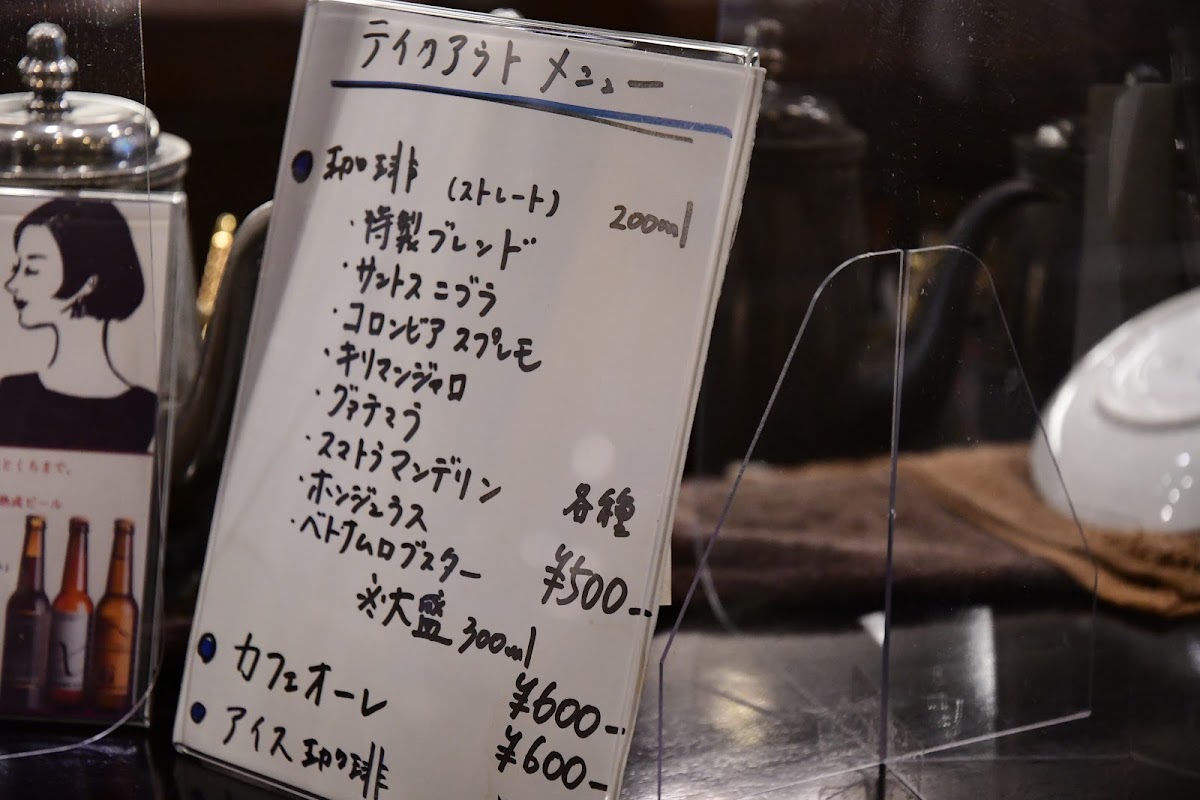 テイクアウト メニュー
珈琲 (ストレート) 200ml
・特製ブレンド
・サントス ニブラ
・コロンビア スプレモ
・キリマンジャロ
・グァテマラ
・スマトラマンデリン 各種
・ホンジュラス
・ベトナムロブスター ¥500-
※大盛 300ml
¥600-
カフェオーレ
¥600-
アイス珈琲
とくちまで。
熟成ビール